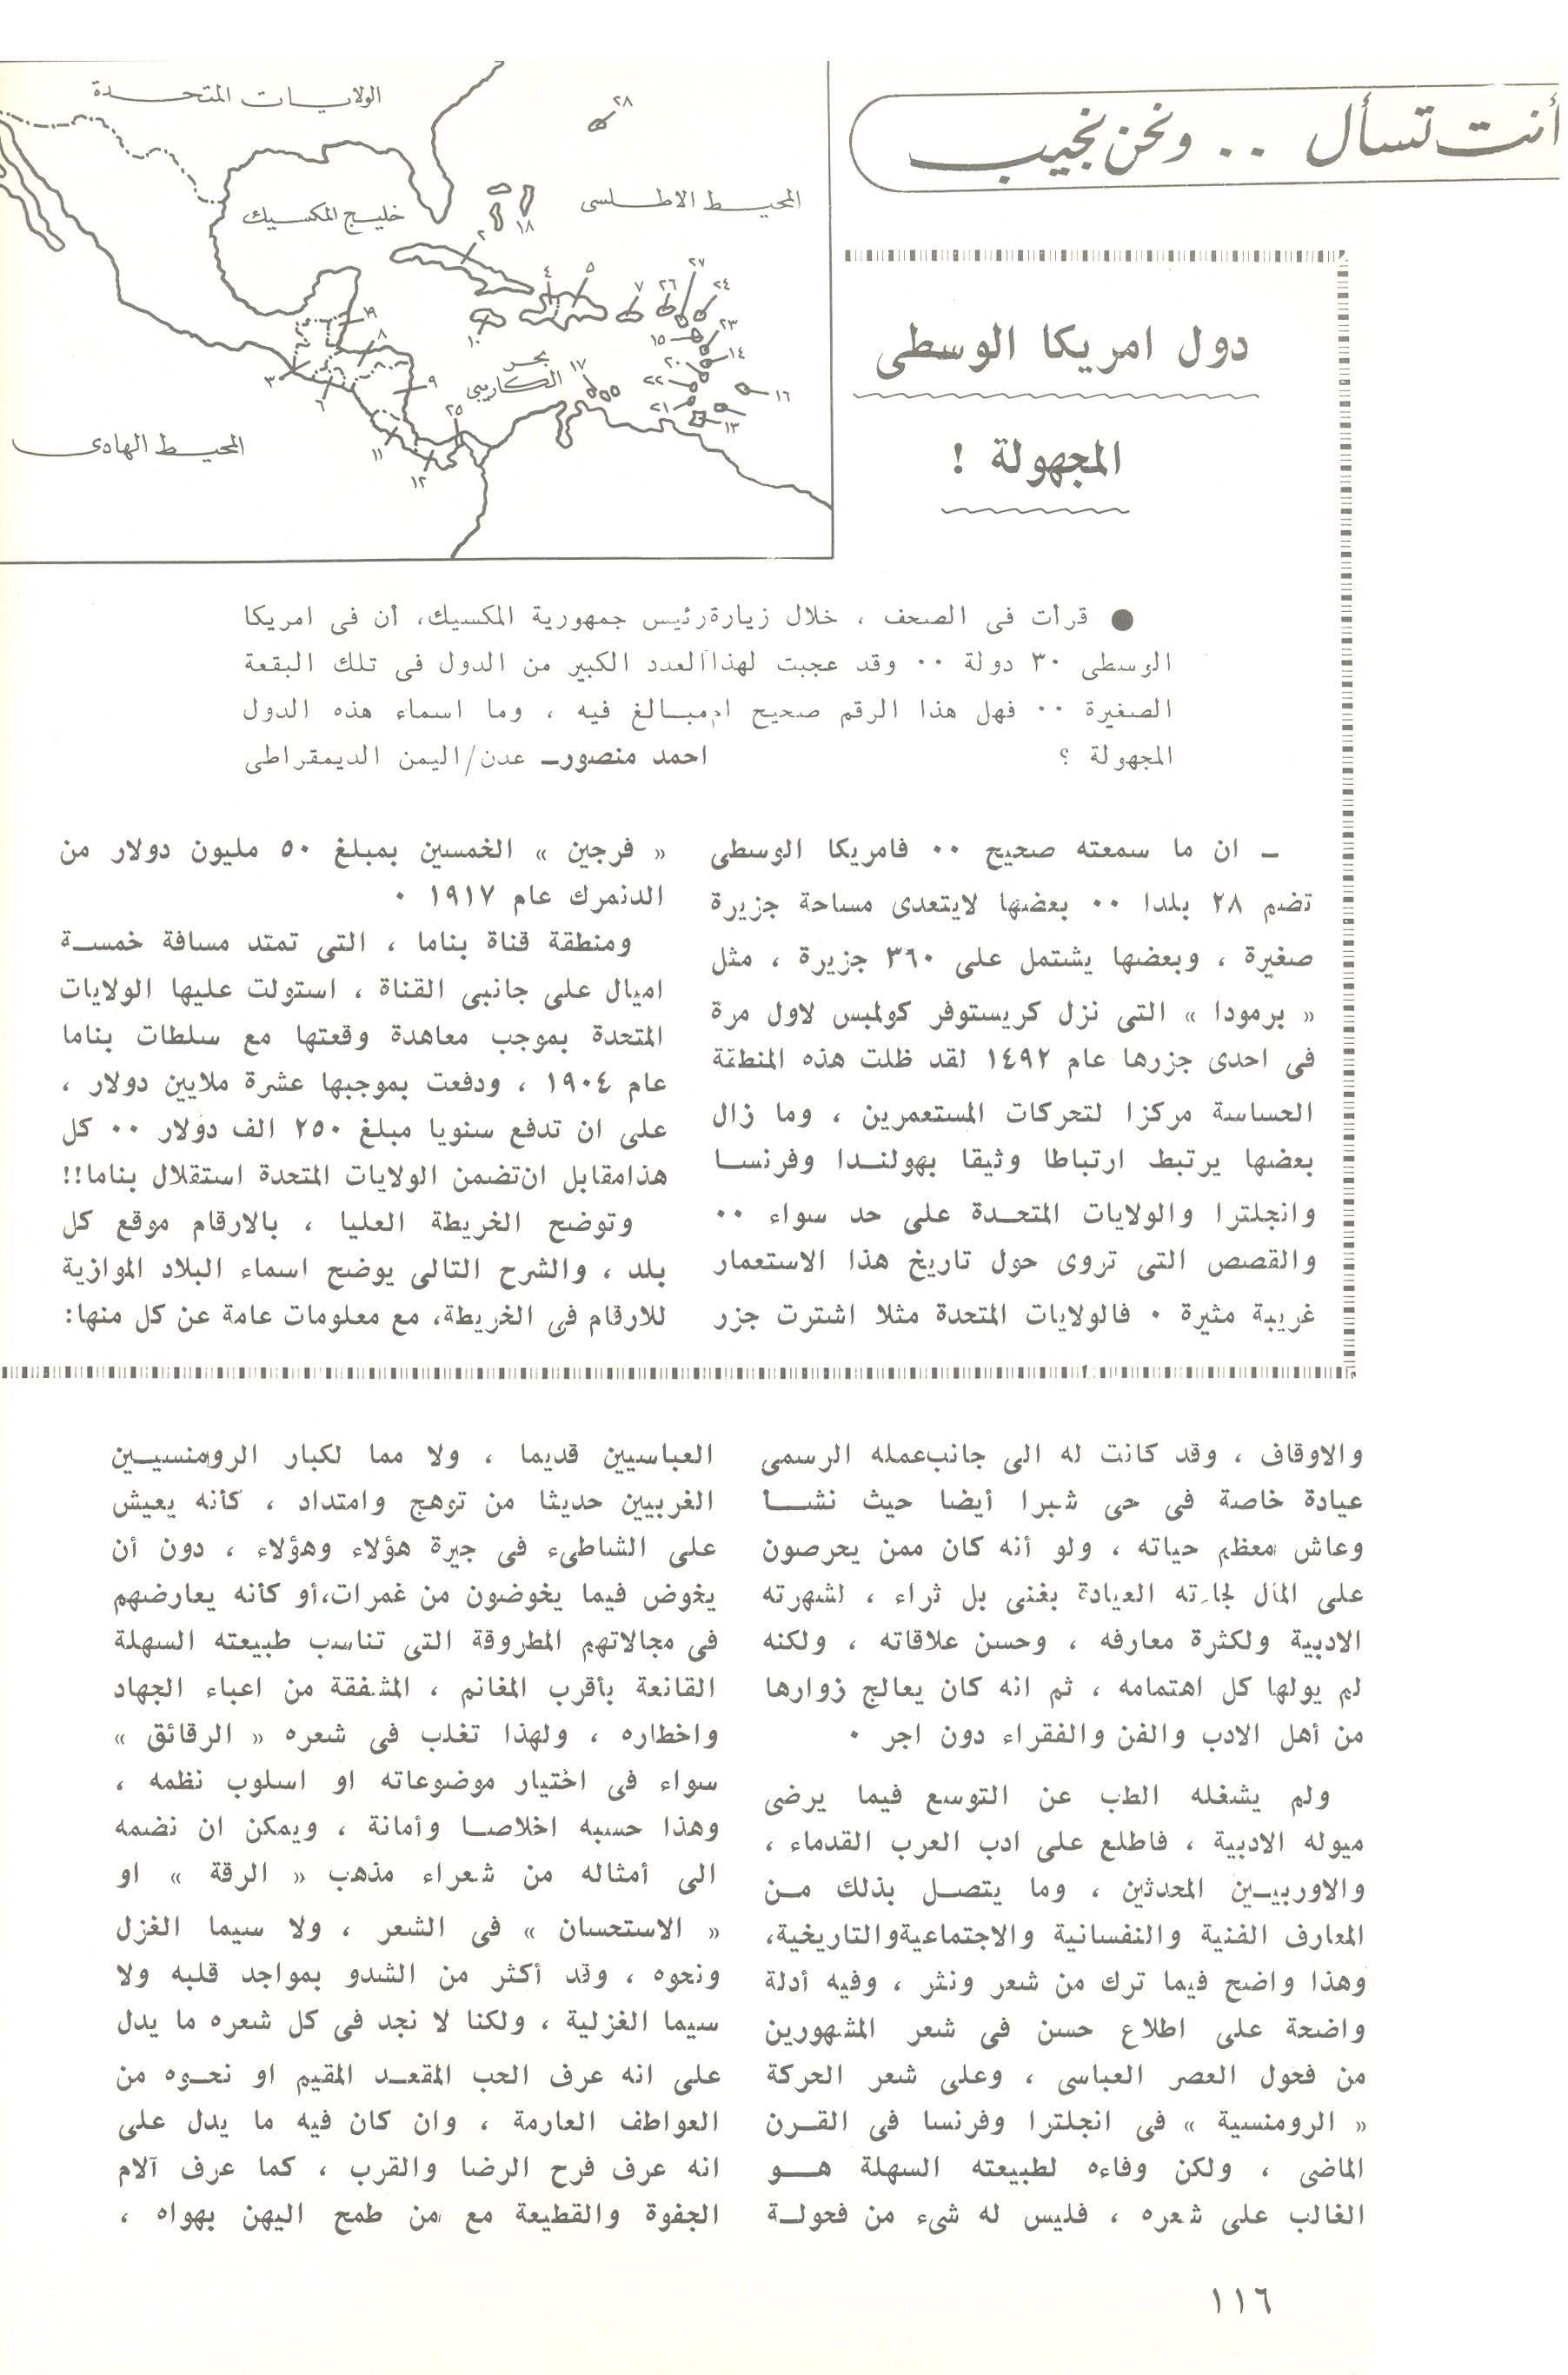 أنت تسأل .. ونحن نجيب
الولايات المتحدة
٢٨
خليج المكسيك
المحيط الاطلسى
١٨
٢
٤
٥
٧
٢٦
٢٧
٢٤
٢٣
١٥
١٤
٢٠
٢٢
١٦
٢١
١٣
١٩
٨
١٠
بحر
الكاريبى
١٧
٣
٦
٩
٢٥
١١
١٢
المحيط الهادى
دول امريكا الوسطى
المجهولة !
● قرأت فى الصحف ، خلال زيارة رئيس جمهورية المكسيك، أن فى امريكا
الوسطى ٣٠ دولة ٠٠ وقد عجبت لهذا العدد الكبير من الدول فى تلك البقعة
الصغيرة ٠٠ فهل هذا الرقم صحيح ام مبالغ فيه ، وما اسماء هذه الدول
المجهولة ؟ احمد منصور ــ عدن/اليمن الديمقراطى
ــ ان ما سمعته صحيح ٠٠ فامريكا الوسطى
تضم ٢٨ بلدا ٠٠ بعضها لايتعدى مساحة جزيرة
صغيرة ، وبعضها يشتمل على ٣٦٠ جزيرة ، مثل
« برمودا » التى نزل كريستوفر كولمبس لاول مرة
فى احدى جزرها عام ١٤٩٢ لقد ظلت هذه المنطقة
الحساسة مركزا لتحركات المستعمرين ، وما زال
بعضها يرتبط ارتباطا وثيقا بهولندا وفرنسا
وانجلترا والولايات المتحدة على حد سواء ٠٠
والقصص التى تروى حول تاريخ هذا الاستعمار
غريبة مثيرة ٠ فالولايات المتحدة مثلا اشترت جزر
« فرجين » الخمسين بمبلغ ٥٠ مليون دولار من
الدنمرك عام ١٩١٧ ٠
ومنطقة قناة بناما ، التى تمتد مسافة خمسة
اميال على جانبى القناة ، استولت عليها الولايات
المتحدة بموجب معاهدة وقعتها مع سلطات بناما
عام ١٩٠٤ ، ودفعت بموجبها عشرة ملايين دولار ،
على ان تدفع سنويا مبلغ ٢٥٠ الف دولار ٠٠ كل
هذا مقابل ان تضمن الولايات المتحدة استقلال بناما!!
وتوضح الخريطة العليا ، بالارقام موقع كل
بلد ، والشرح التالى يوضح اسماء البلاد الموازية
للارقام فى الخريطة، مع معلومات عامة عن كل منها:
والاوقاف ، وقد كانت له الى جانب عمله الرسمى
عيادة خاصة فى حى شبرا أيضا حيث نشأ
وعاش معظم حياته ، ولو أنه كان ممن يحرصون
على المال لجاءته العيادة بغنى بل ثراء ، لشهرته
الادبية ولكثرة معارفه ، وحسن علاقاته ، ولكنه
لم يولها كل اهتمامه ، ثم انه كان يعالج زوارها
من أهل الادب والفن والفقراء دون اجر ٠
ولم يشغله الطب عن التوسع فيما يرضى
ميوله الادبية ، فاطلع على ادب العرب القدماء ،
والاوربيين المحدثين ، وما يتصل بذلك من
المعارف الفنية والنفسانية والاجتماعية والتاريخية،
وهذا واضح فيما ترك من شعر ونثر ، وفيه أدلة
واضحة على اطلاع حسن فى شعر المشهورين
من فحول العصر العباسى ، وعلى شعر الحركة
« الرومنسية » فى انجلترا وفرنسا فى القرن
الماضى ، ولكن وفاءه لطبيعته السهلة هو
الغالب على شعره ، فليس له شىء من فحولة
العباسيين قديما ، ولا مما لكبار الرومنسيين
الغربيين حديثا من توهج وامتداد ، كأنه يعيش
على الشاطىء فى جيرة هؤلاء وهؤلاء ، دون أن
يخوض فيما يخوضون من غمرات، أو كأنه يعارضهم
فى مجالاتهم المطروقة التى تناسب طبيعته السهلة
القانعة بأقرب المغانم ، المشفقة من اعباء الجهاد
واخطاره ، ولهذا تغلب فى شعره « الرقائق »
سواء فى اختيار موضوعاته او اسلوب نظمه ،
وهذا حسبه اخلاصا وأمانة ، ويمكن ان نضمه
الى أمثاله من شعراء مذهب « الرقة » او
« الاستحسان » فى الشعر ، ولا سيما الغزل
ونحوه ، وقد أكثر من الشدو بمواجد قلبه ولا
سيما الغزلية ، ولكنا لا نجد فى كل شعره ما يدل
على انه عرف الحب المقعد المقيم او نحوه من
العواطف العارمة ، وان كان فيه ما يدل على
انه عرف فرح الرضا والقرب ، كما عرف آلام
الجفوة والقطيعة مع من طمح اليهن بهواه ،
١١٦